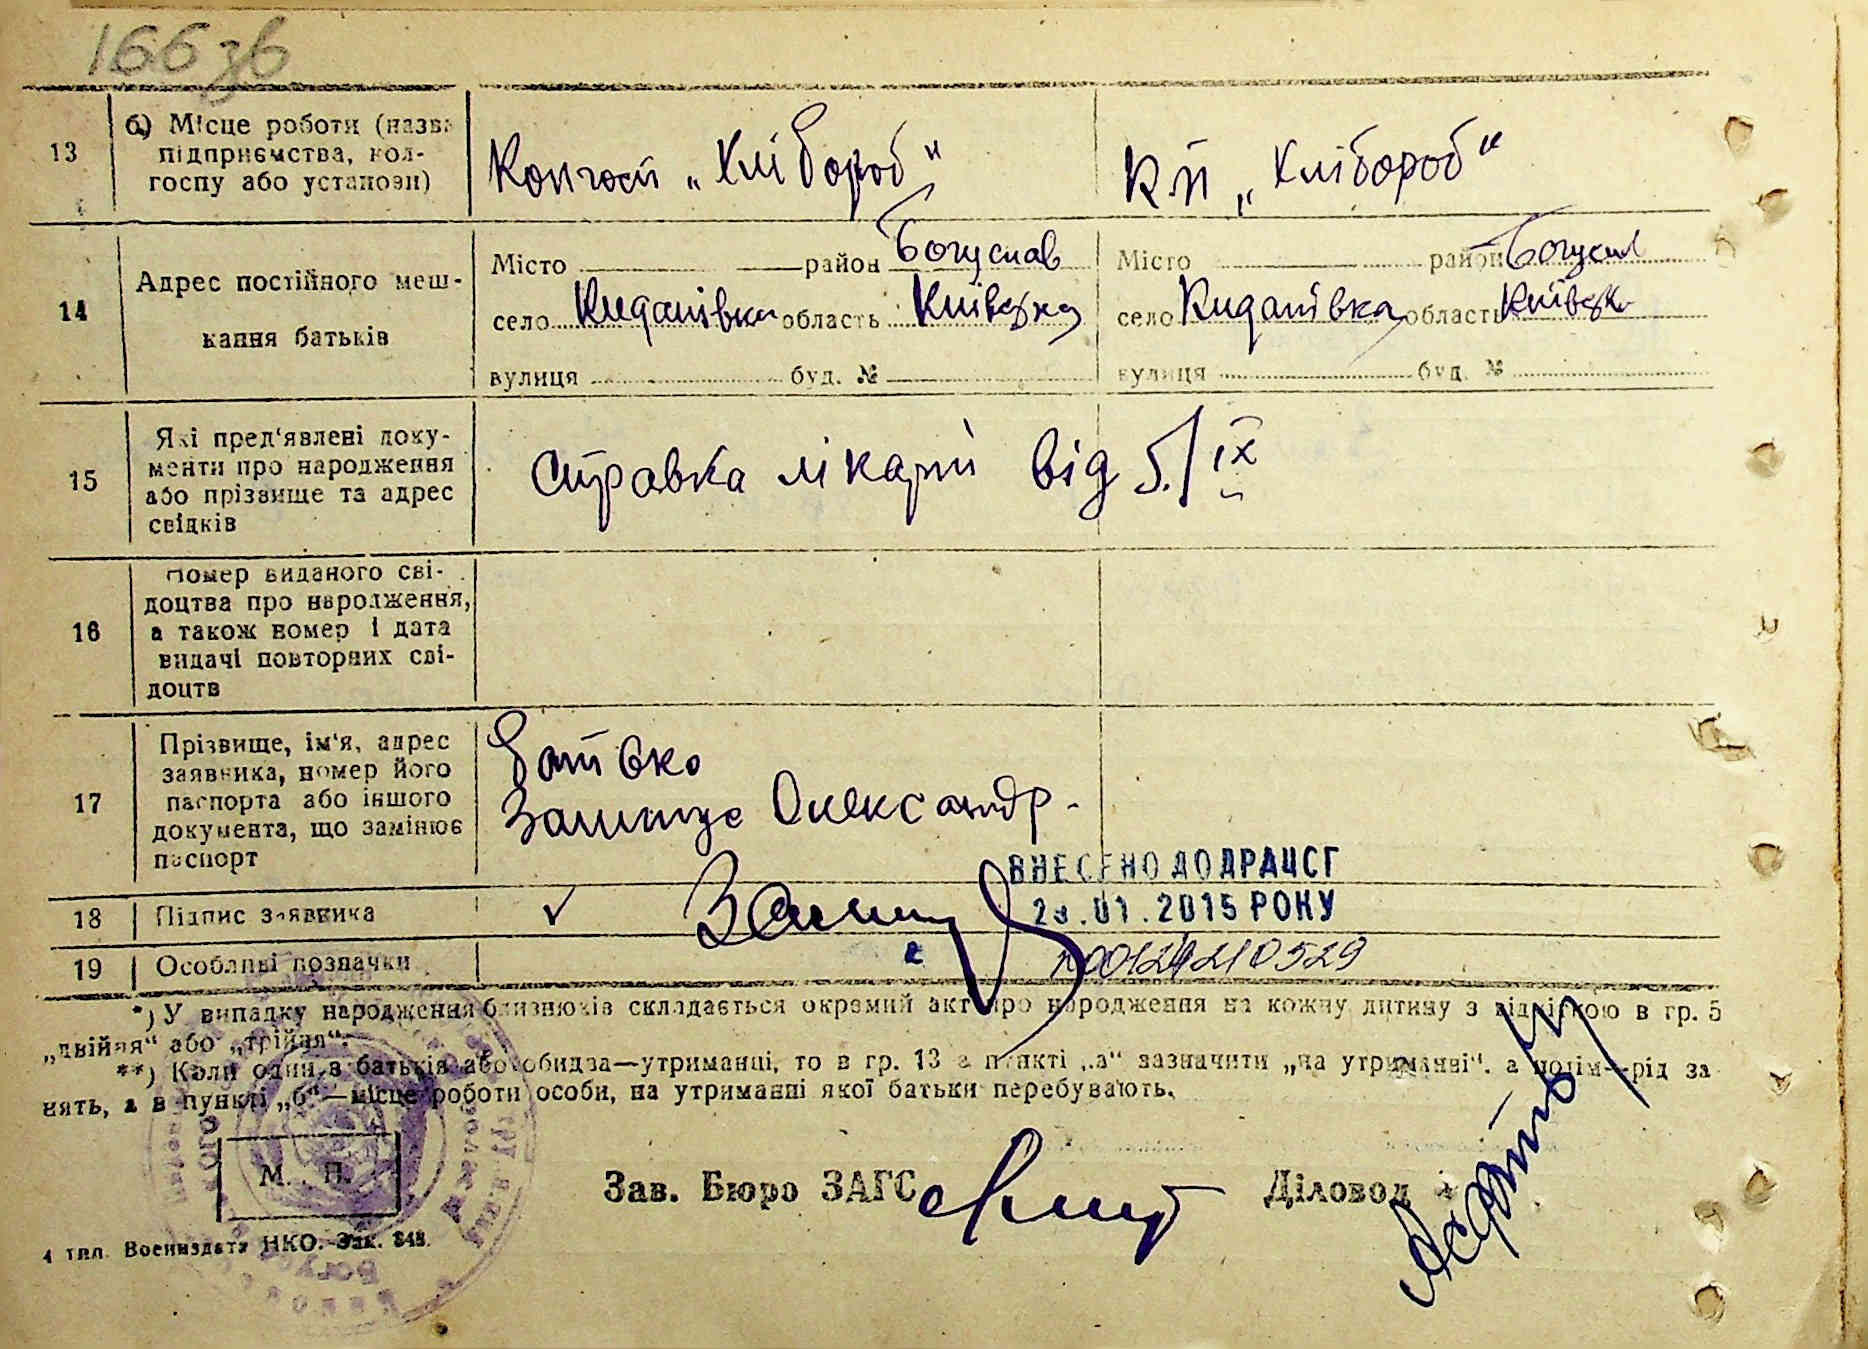 166 зв
13
б) Місце роботи (назва
підприємства, кол-
госпу або установи)
Колгосп „Хлібороб"
К.п „Хлібороб"
14
Адрес постійного меш-
кання батьків
Місто район Богуслав
село Киданівка область Київська
вулиця буд. №
Місто район Богусл
село Киданівка область Київськ
вулиця буд. №
15
Які пред'явлені доку-
менти про народження
або прізвище та адрес
свідків
Справка лікарні від 5/IX
16
Номер виданого сві-
доцтва про народження,
а також номер і дата
видачі повторних сві-
доцтв
17
Прізвище, ім'я, адрес
заявника, номер його
паспорта або іншого
документа, що замінює
паспорт
батько
Олександр.
ВНЕСЕНО ДО ДРАЦСГ
18 Підпис заявника
.01.2015 РОКУ
19 Особливі позначки
00124210529
*) У випадку народження близнюків складається окремий акт про народження на кожну дитину з відміткою в гр. 5
„двійня" або „трійня".
**) Коли один з батьків або обидва—утриманці, то в гр. 13 в пункті „а" зазначити „на утриманні". а потім—рід за
нять, а в пункті „б"—місце роботи особи, на утриманні якої батьки перебувають.
М. П.
Зав. Бюро ЗАГС
Діловод
4 тип. Воениздата НКО. Зак. 848.